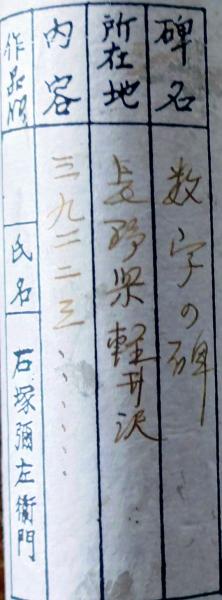 碑名 数字の碑
所在地 長野県軽井沢
内容 三九二二三、、、、、、
作品No. 氏名 石塚彌左衛門